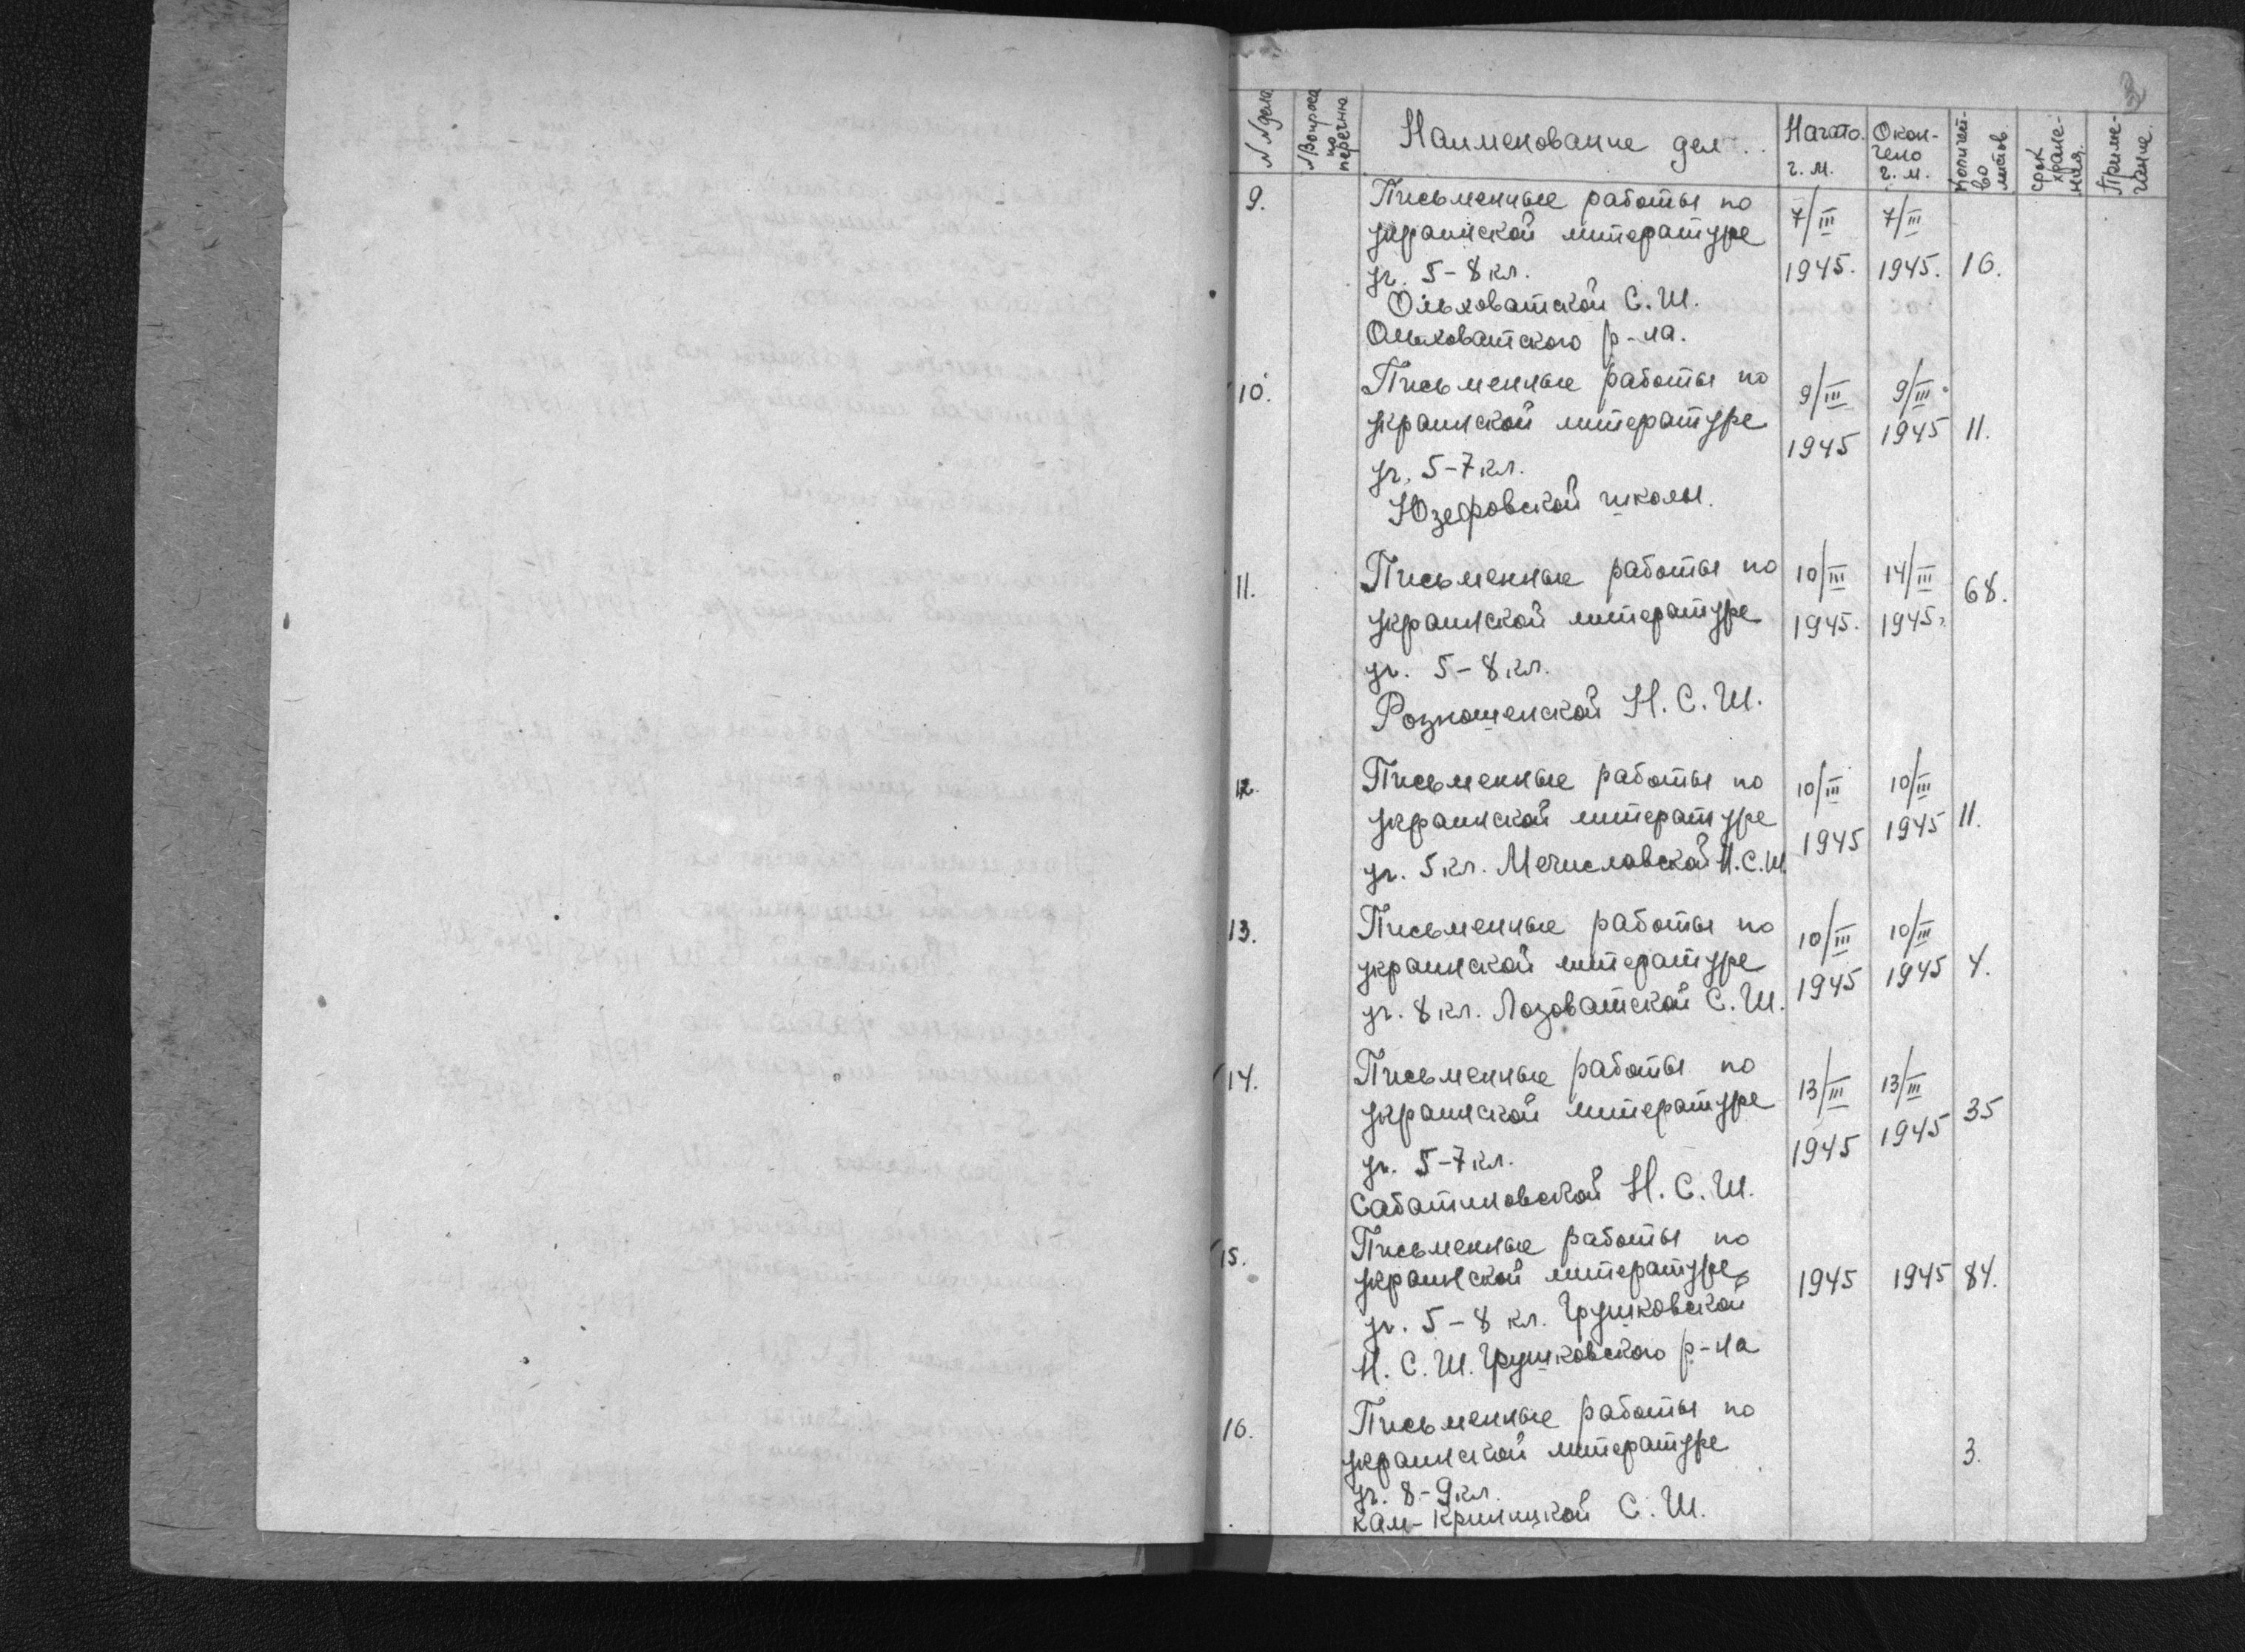 3
N N дела
N Вопроса по перечню
Наименование дел.
Начато. г. м.
Окончено г. м.
Количест-во листов.
Срок хране-ния.
Приме-чание.
9.
Письменные работы по
украинской литературе
уч. 5-8 кл.
Ольховатской С. Ш.
Ольховатского р-на.
7/III 1945.
7/III 1945.
16.
10.
Письменные работы по
украинской литературе
уч. 5-7 кл.
Юзефовской школы.
9/III 1945
9/III 1945
11.
11.
Письменные работы по
украинской литературе
уч. 5-8 кл.
Розношенской Н. С. Ш.
10/III 1945.
14/III 1945.
68.
12.
Письменные работы по
украинской литературе
уч. 5 кл. Мечиславской Н. С. Ш.
10/III 1945
10/III 1945
11.
13.
Письменные работы по
украинской литературе
уч. 8 кл. Лозоватской С. Ш.
10/III 1945
10/III 1945
4.
14.
Письменные работы по
украинской литературе
уч. 5-7 кл.
Сабатиновской Н. С. Ш.
13/III 1945
13/III 1945
35
15.
Письменные работы по
украинской литературе
уч. 5-8 кл. Грушковской
Н. С. Ш. Грушковского р-на
1945
1945
84.
16.
Письменные работы по
украинской литературе
уч. 8-9 кл.
Кам-Криницкой С. Ш.
3.